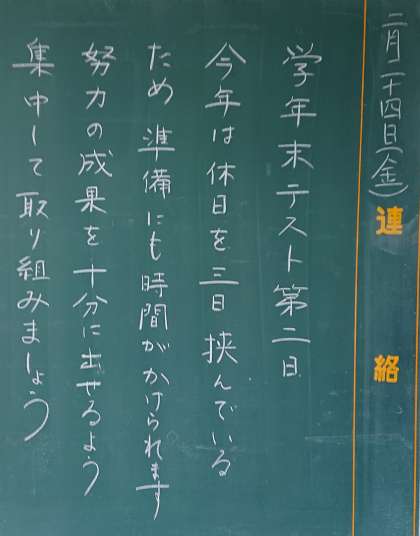 二月二十四日(金)
連絡
学年末テスト第二日
今年は休日を三日挟んでいる
ため準備にも時間がかけられます
努力の成果を十分に出せるよう
集中して取り組みましょう